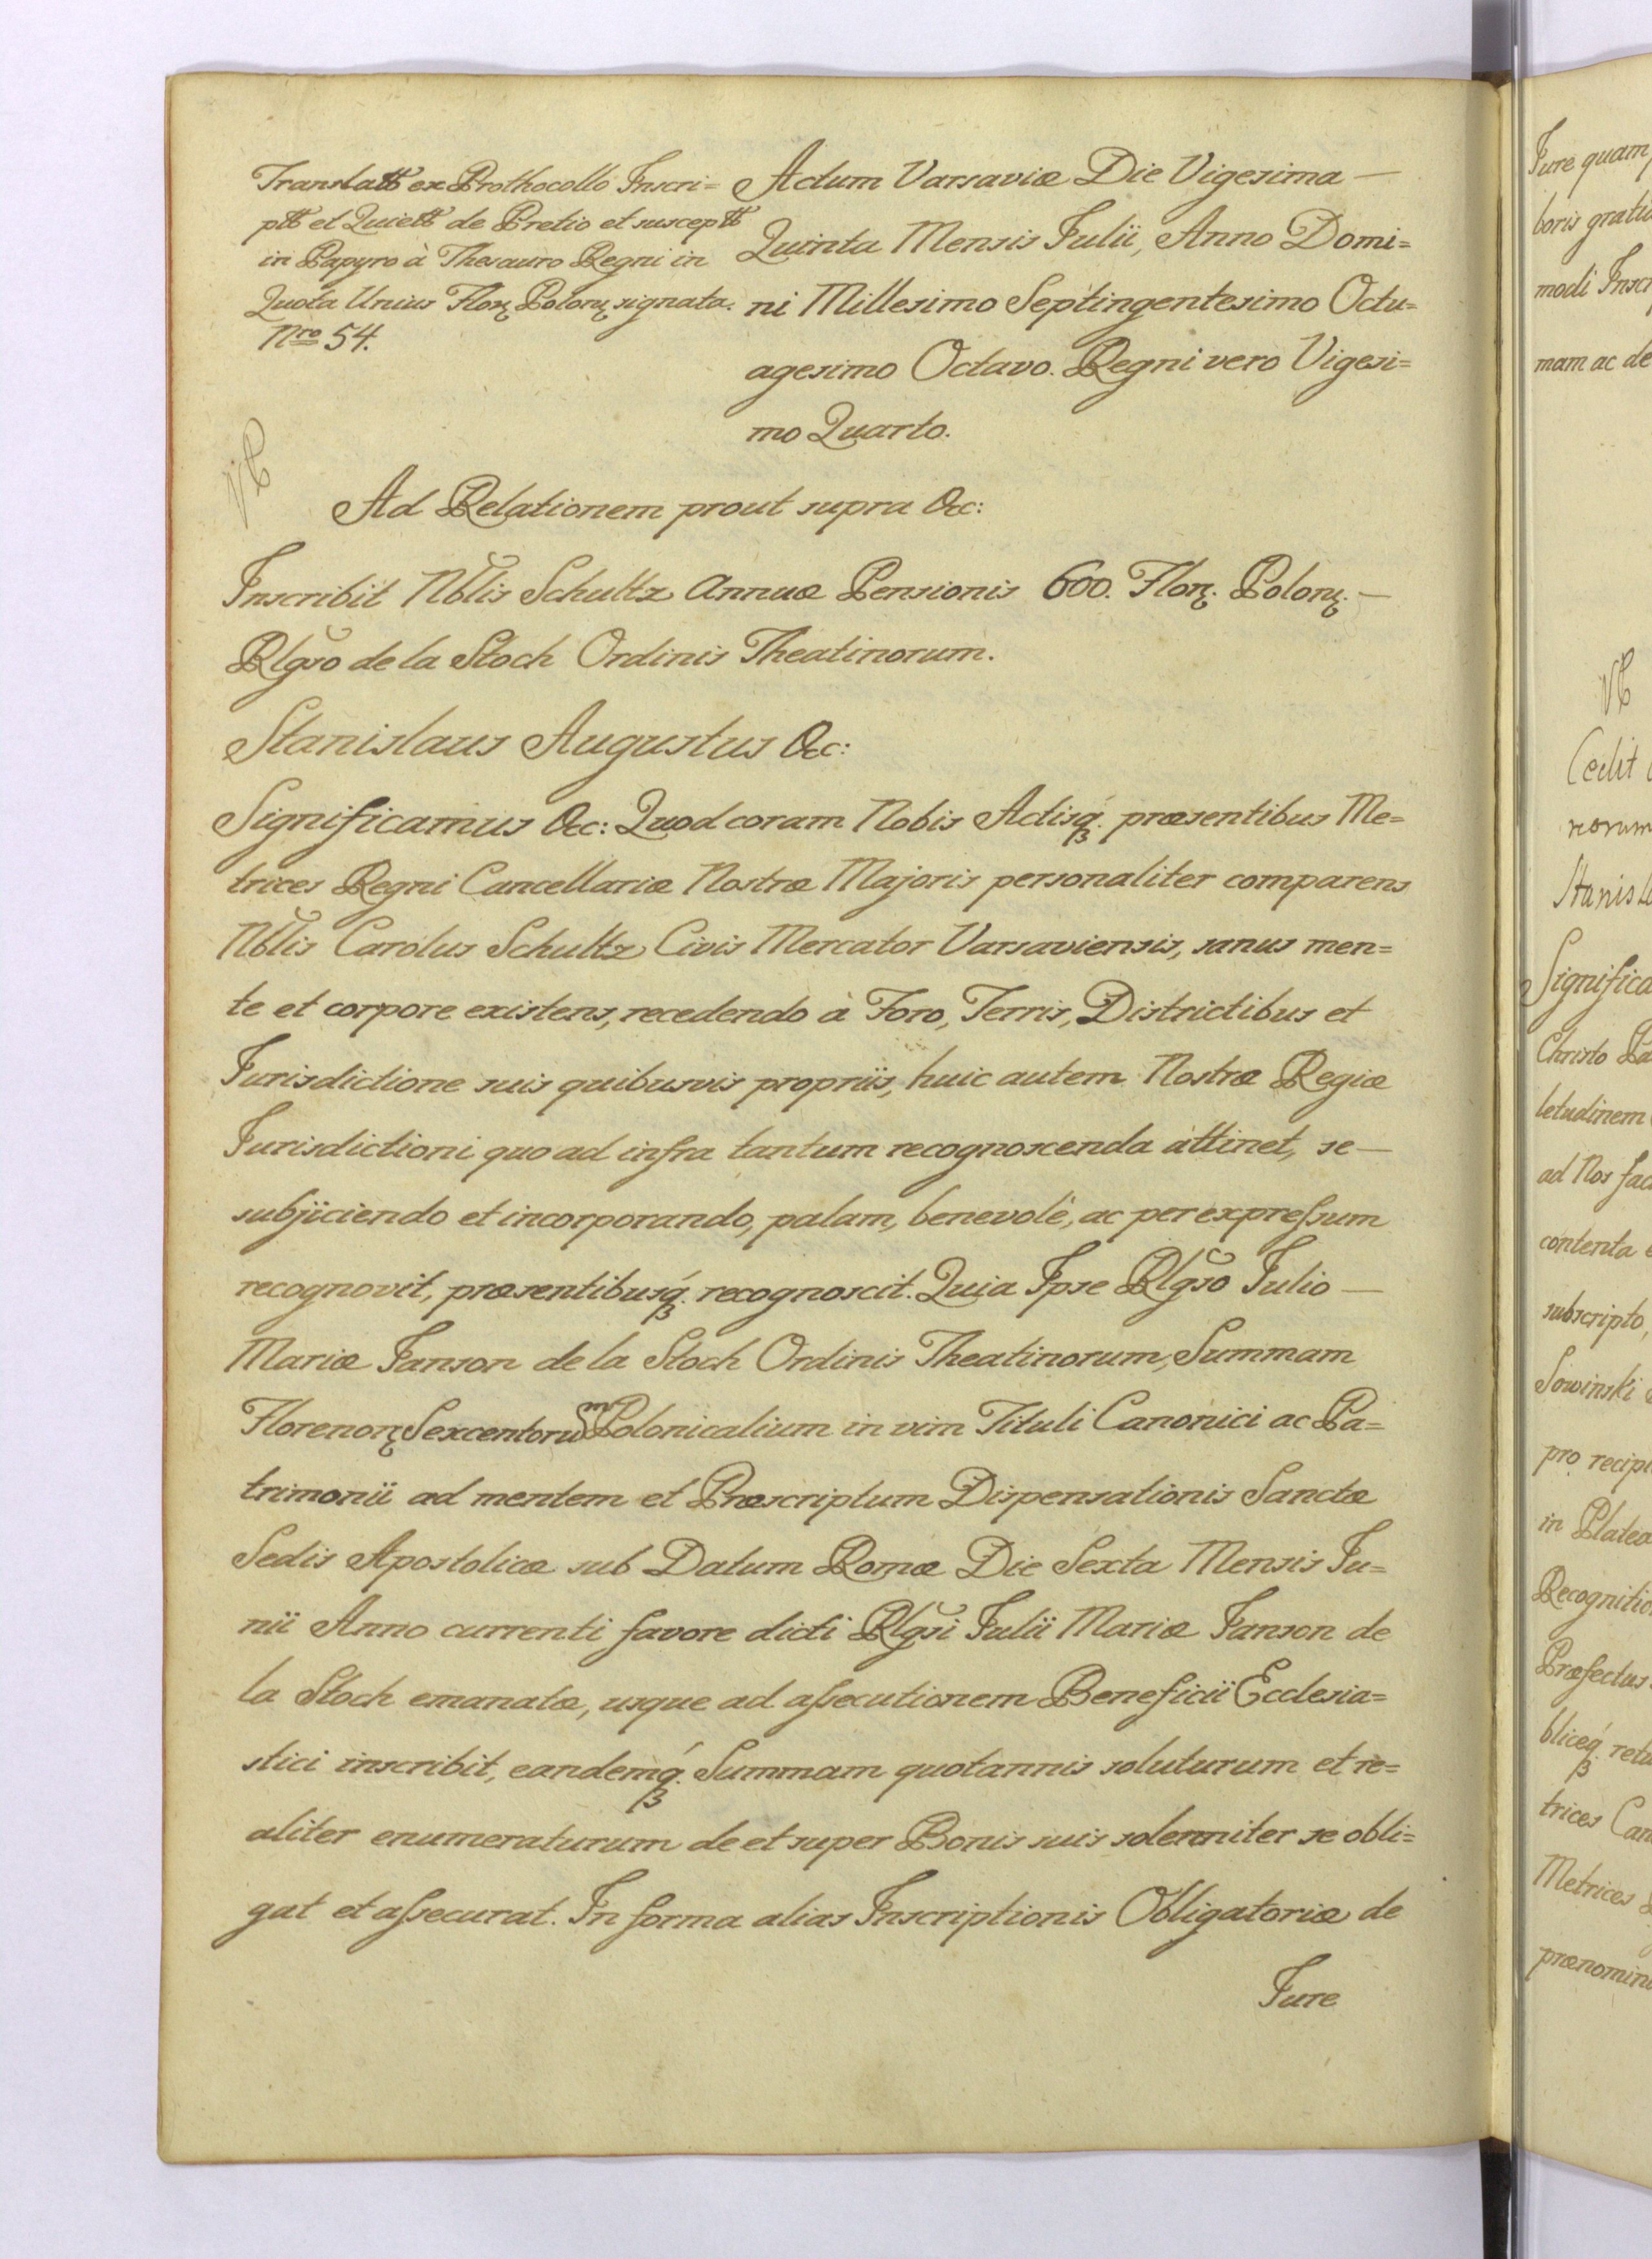 Translatt ex Prothocollo Inscri=
ptt et Quiett de Pretio et susceptt
in Papyro à Thesauro Regni in
Quota Unius Florꝝ Polonꝝ signata.
Nro 54.
Actum Varsaviæ Die Vigesima —
Quinta Mensis Julii, Anno Domi=
ni Millesimo Septingentesimo Octu=
agesimo Octavo. Regni vero Vigesi=
mo Quarto.
Ad Relationem prout supra &c:
Inscribit Nblis Schultz annuæ Pensionis 600. Florꝝ. Polonꝝ. —
Rlgso de la Stoch Ordinis Theatinorum.
Stanislaus Augustus &c:
Significamus &c: Quod coram Nobis Actisq́ꝫ. præsentibus Me=
trices Regni Cancellariæ Nostræ Majoris personaliter comparens
Nblis Carolus Schultz Civis Mercator Varsaviensis, sanus men=
te et corpore existens, recedendo à Foro, Terris, Districtibus et
Jurisdictione suis quibusvis propriis, huic autem Nostræ Regiæ
Jurisdictioni quo ad infra tantum recognoscenda attinet, se —
subjiciendo et incorporando, palam, benevolè, ac per expreſsum
recognovit, præsentibusq́ꝫ. recognoscit. Quia Ipse Rlgso Julio —
Mariæ Janson de la Stoch Ordinis Theatinorum, Summam
Florenorꝝ Sexcentorum Polonicalium in vim Tituli Canonici ac Pa=
trimonii ad mentem et Præscriptum Dispensationis Sanctæ
Sedis Apostolicæ sub Datum Romæ Die Sexta Mensis Ju=
nii Anno currenti favore dicti Rlgsi Julii Mariæ Janson de
la Stoch emanatæ, usque ad aſsecutionem Beneficii Ecclesia=
stici inscribit, eandemq́ꝫ. Summam quotannis soluturum et re=
aliter enumeraturum de et super Bonis suis solenniter se obli=
gat et aſsecurat. In forma alias Inscriptionis Obligatoriæ de
Jure
Jure quam
boris
modi Inscr
mam ac de
Cedit
norum
Stanisla
Significa
Christo Pa
letudinem
ad Nos fac
contenta
subscripto,
Sowinski
pro recipi
in Platea
Recognitio
Præfectus
bliceq́ꝫ. retu
trices Can
Metrices
prænomina